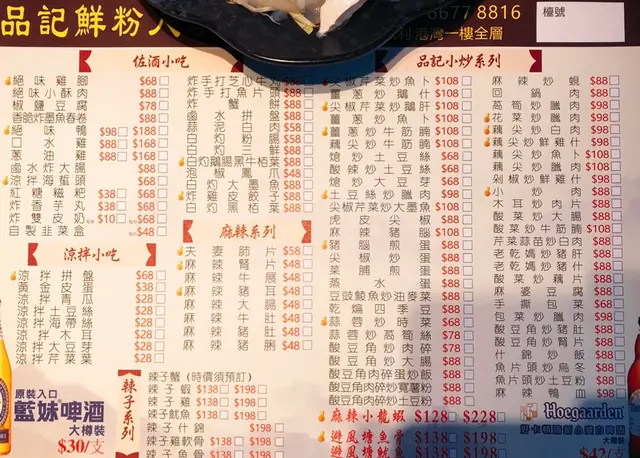 品記鮮粉人
6677 8816
利港灣一樓全層
檯號
佐酒小吃
絕味雞腳 $68
絕味小酥肉 $88
椒鹽豆腐 $78
香脆炸墨魚春卷 $88
絕味鴨 $98 $188
口水雞 $88 $168
蔥油雞 $88 $168
鹵水炸大腸 $88
涼拌海蜇頭 $68
紅糖糍粑 $38 $68
炸香芋丸 $38 $68
炸雙皮奶 $10 $68
自製韭菜盒 $48
炸手打芝心牛丸 $88
炸手打魚片頭 $88
炸蟹餅 $88
鹵水拼盤 $88
蒜泥白肉 $58
白灼粉腸 $58
白灼三鮮 $88
白灼鵝腸黑牛栢葉 $88
泡椒鳳爪 $48
白灼大墨魚 $88
炸雞皮餃子 $88
白灼黑栢葉 $88
涼拌小吃
涼拌拼盤 $68
黃金皮蛋 $38
涼拌青瓜 $28
涼拌土豆絲 $28
涼拌海帶絲 $28
涼拌木耳 $28
涼拌大豆芽 $28
涼拌芹菜葉 $28
麻辣系列
夫妻肺片 $58
麻辣腎片 $48
麻辣牛展 $48
麻辣豬耳 $48
麻辣大腸 $48
麻辣牛肚 $48
麻辣豬肚 $48
麻辣豬脷 $48
辣子系列
辣子蟹 (時價須預訂)
辣子蝦 $138 $198
辣子雞 $138 $198
辣子魷魚 $138 $198
辣子什錦 $198
辣子雞軟骨 $138 $198
辣子魚骨 $138 $198
品記小炒系列
尖椒芹菜炒魚卜 $108
薑蔥炒鵝什 $108
尖椒芹菜炒鵝肝 $108
薑蔥炒魚卜 $108
薑蔥炒牛筋腩 $108
尖椒炒牛筋腩 $108
熗炒土豆絲 $68
酸辣炒土豆絲 $68
熗炒大豆芽 $68
土豆絲炒臘肉 $98
尖椒芹菜炒大墨魚 $108
虎皮尖椒 $88
麻辣豬腦 $108
豬腦煎蛋 $88
韭菜煎蛋 $88
菜脯煎蛋 $88
蒸水蛋 $88
豆豉鯪魚炒油麥菜 $88
乾煸四季豆 $88
蒜蓉炒時菜 $88
蒜蓉炒萵筍絲 $78
酸豆角炒肉碎 $78
酸豆角炒大腸 $88
酸豆角肉碎炒蛋炒飯 $88
酸豆角肉碎炒薯粉 $88
酸豆角肉碎炒土豆粉 $88
麻辣小龍蝦 $128 $228
避風塘魚骨 $138 $198
避風塘魷魚 $138 $198
麻辣炒蜆 $88
回鍋肉 $88
萵筍炒臘肉 $98
花菜炒臘肉 $98
藕尖炒白肉 $98
藕尖炒鮮雞什 $98
藕尖炒魚卜 $108
藕尖炒臘肉 $108
剁椒炒鮮雞什 $98
小炒肉 $98
木耳炒肉片 $88
酸菜炒大腸 $88
酸菜炒牛筋腩 $108
芹菜蒜苗炒白肉 $88
老乾媽炒豬肝 $88
老乾媽炒豬什 $88
酸菜炒藕片 $88
麻婆豆腐 $88
手撕包菜 $68
包菜炒臘肉 $98
酸豆角炒豬肚 $88
酸豆角炒牛肚 $88
什錦炒飯 $88
魚片頭炒烏冬 $88
魚片頭炒土豆粉 $88
麻辣鴨血 $98
原裝入口
藍妹啤酒
大樽裝
$30/支
Hoegaarden
大樽裝
$42/支